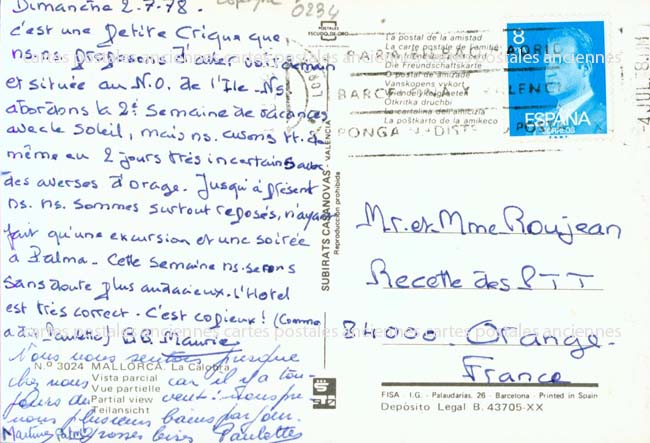 Dimanche 2.7.78.
c'est une petite Crique que
ns. ns. proposons d'aller voir demain
et située au N.O. de l'Ile. Ns
abordons la 2è Semaine de vacances
avec le Soleil, mais ns. avons tt. de
même eu 2 jours très incertains avec
des averses d'orage. Jusqu'à présent
ns. ns. sommes surtout reposés, n'ayant
fait qu'une excursion et une soirée
à Palma. Cette Semaine ns. serons
sans doute plus audacieux. l'Hotel
est très correct. C'est copieux! (Comme
a dit Paulette) B.B. Maurice
Nous nous sentons presque
chez nous car il y a tou-
jours du vent. Nous prenons
plusieurs bains par jour.
Grosses bises Paulette
Martinez Palma
0234
N.º 3024 MALLORCA. La Calobra
Vista parcial
Vue partielle
Partial view
Teilansicht
POSTALES
ESCUDO DE ORO
SUBIRATS CASANOVAS - VALENCIA
Reproducción prohibida
La postal de la amistad
La carte postale de l'amitié
Die Freundschaftskarte
O postal de amizade
Vanskopens vykort
Otkritka druchbi
La cartolina dell'amicizia
La poŝtkarto de la amikeco
PARA
MADRID
BARCELONA Y VALENCIA
PONGA DIST POSTAL
4 JUL 8
8
ESPAÑA
CORREOS
Mr. et Mme Roujean
Recette des PTT
84000. Orange.
France
FISA - I.G. - Palaudarias, 26 - Barcelona - Printed in Spain
Depósito Legal B. 43705-XX
cartes postales anciennes cartes postales anciennes cartes postales anciennes